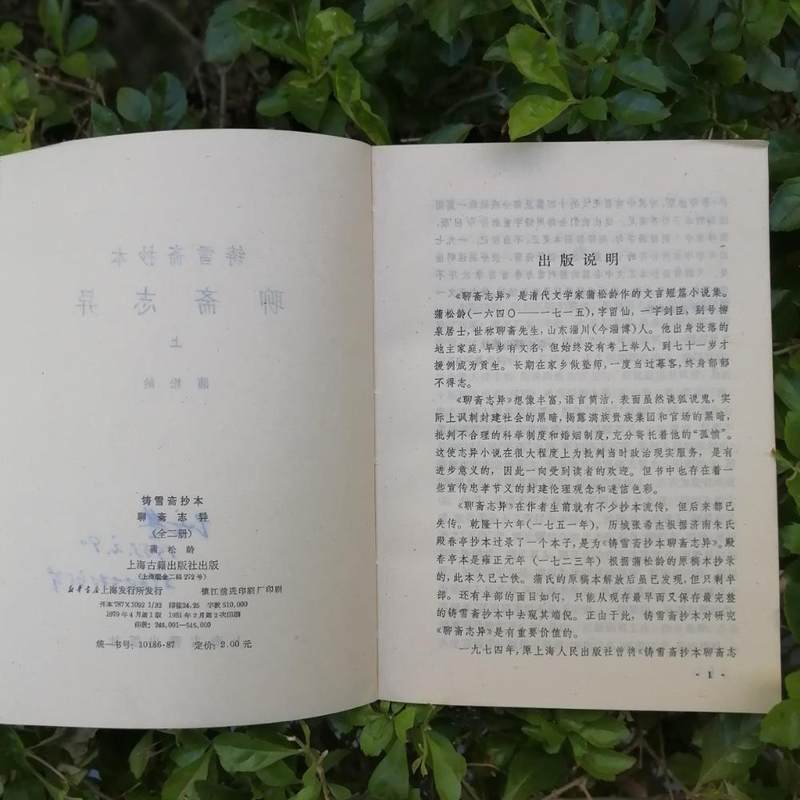 铸雪斋抄本
聊斋志异
上
蒲松龄
铸雪斋抄本
聊斋志异
(全二册)
蒲松龄
上海古籍出版社出版
(上海瑞金二路272号)
新华书店上海发行所发行 镇江前进印刷厂印刷
开本787×1092 1/32 印张24.25 字数510,000
1979年4月第1版 1981年2月第3次印刷
印数:245,001—545,000
统一书号:10186·87 定价:2.00元
出版说明
《聊斋志异》是清代文学家蒲松龄作的文言短篇小说集。
蒲松龄(一六四〇——一七一五),字留仙,一字剑臣,别号柳
泉居士,世称聊斋先生,山东淄川(今淄博)人。他出身没落的
地主家庭,早岁有文名,但始终没有考上举人,到七十一岁才
援例成为贡生。长期在家乡做塾师,一度当过幕客,终身郁郁
不得志。
《聊斋志异》想像丰富,语言简洁,表面虽然谈狐说鬼,实
际上讽刺封建社会的黑暗,揭露满族贵族集团和官场的黑暗,
批判不合理的科举制度和婚姻制度,充分寄托着他的“孤愤”。
这使志异小说在很大程度上为批判当时政治现实服务,是有
进步意义的,因此一向受到读者的欢迎。但书中也存在着一
些宣传忠孝节义的封建伦理观念和迷信色彩。
《聊斋志异》在作者生前就有不少抄本流传,但后来都已
失传。乾隆十六年(一七五一年),历城张希杰根据济南朱氏
殿春亭抄本过录了一个本子,是为《铸雪斋抄本聊斋志异》。殿
春亭本是雍正元年(一七二三年)根据蒲松龄的原稿本抄录
的,此本久已亡佚。蒲氏的原稿本解放后虽已发现,但只剩半
部。还有半部的面目如何,只能从现存最早而又保存最完整
的铸雪斋抄本中去窥其端倪。正由于此,铸雪斋抄本对研究
《聊斋志异》是有重要价值的。
一九七四年,原上海人民出版社曾将《铸雪斋抄本聊斋志
·1·